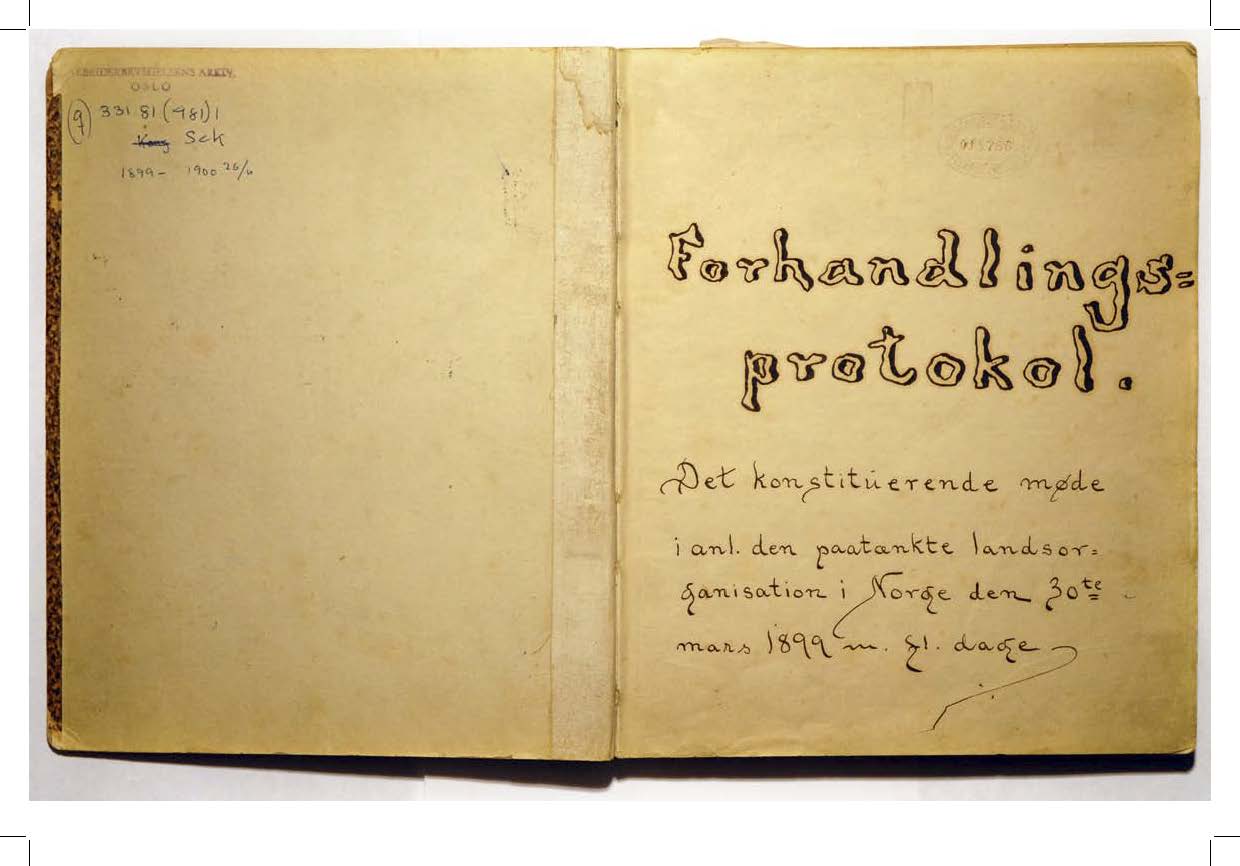 ARBEIDERBEVEGELSENS ARKIV,
OSLO
(9) 331 81 (481) 1
Sek
1899 – 1900 26/6
Forhandlings=
protokol.
Det konstituerende møde
i anl. den paatænkte landsor=
ganisation i Norge den 30te
mars 1899 m. fl. dage